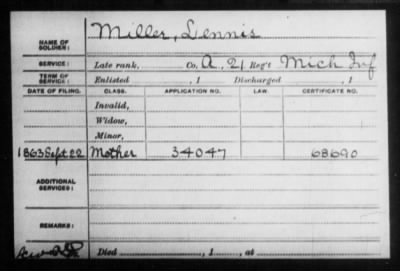 NAME OF SOLDIER: Miller, Dennis
SERVICE: Late rank, Co. A, 21 Reg't Mich Inf
TERM OF SERVICE: Enlisted , 1 Discharged , 1
DATE OF FILING. CLASS. APPLICATION NO. LAW. CERTIFICATE NO.
Invalid,
Widow,
Minor,
1863 Sept 22 Mother 34047 68690
ADDITIONAL SERVICES:
REMARKS:
Died , 1 , at